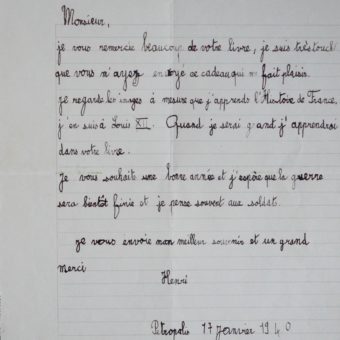 Monsieur,
je vous remercie beaucoup de votre livre, je suis très touché
que vous m'ayez envoyé ce cadeau qui m fait plaisir.
Je regarde les images à mesure que j'apprends l'Histoire de France,
j'en suis à Louis XII. Quand je serai grand j'apprendrai
dans votre livre.
Je vous souhaite une bonne année et j'espère que la guerre
sera bientôt finie et je pense souvent aux soldats.
je vous envoie mon meilleur souvenir et un grand
merci
Henri
Petropolis 17 Janvier 1940